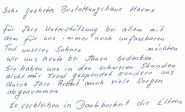 Sehr geehrtes Bestattungshaus Harms
für Ihre Unterstützung bei allem mit
dem für uns immer noch unfassbaren
Tod unseres Sohnes möchten
wir uns heute bei Ihnen bedanken.
Sie haben uns in schweren Stunden
nicht nur Trost gespendet sondern uns
durch Ihre Arbeit auch viele Sorgen
abgenommen.
Es verbleiben in Dankbarkeit die Eltern